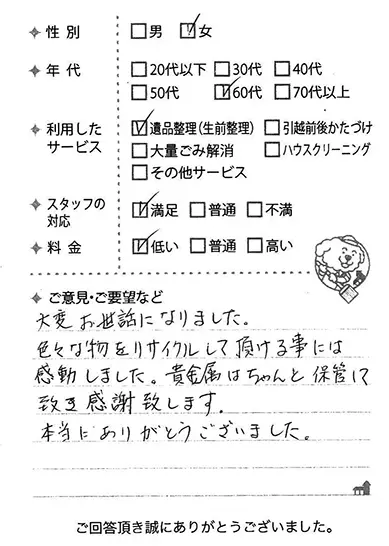 ✦ 性別 □男 ☑女
✦ 年代 □20代以下 □30代 □40代
□50代 ☑60代 □70代以上
✦ 利用した ☑遺品整理(生前整理) □引越前後かたづけ
サービス □大量ごみ解消 □ハウスクリーニング
□その他サービス
✦ スタッフの
対応 ☑満足 □普通 □不満
✦ 料金 ☑低い □普通 □高い
✦ ご意見・ご要望など
大変お世話になりました。
色々な物をリサイクルして頂ける事には
感動しました。貴金属はちゃんと保管して
致き感謝致します.
本当にありがとうございました。
ご回答頂き誠にありがとうございました。